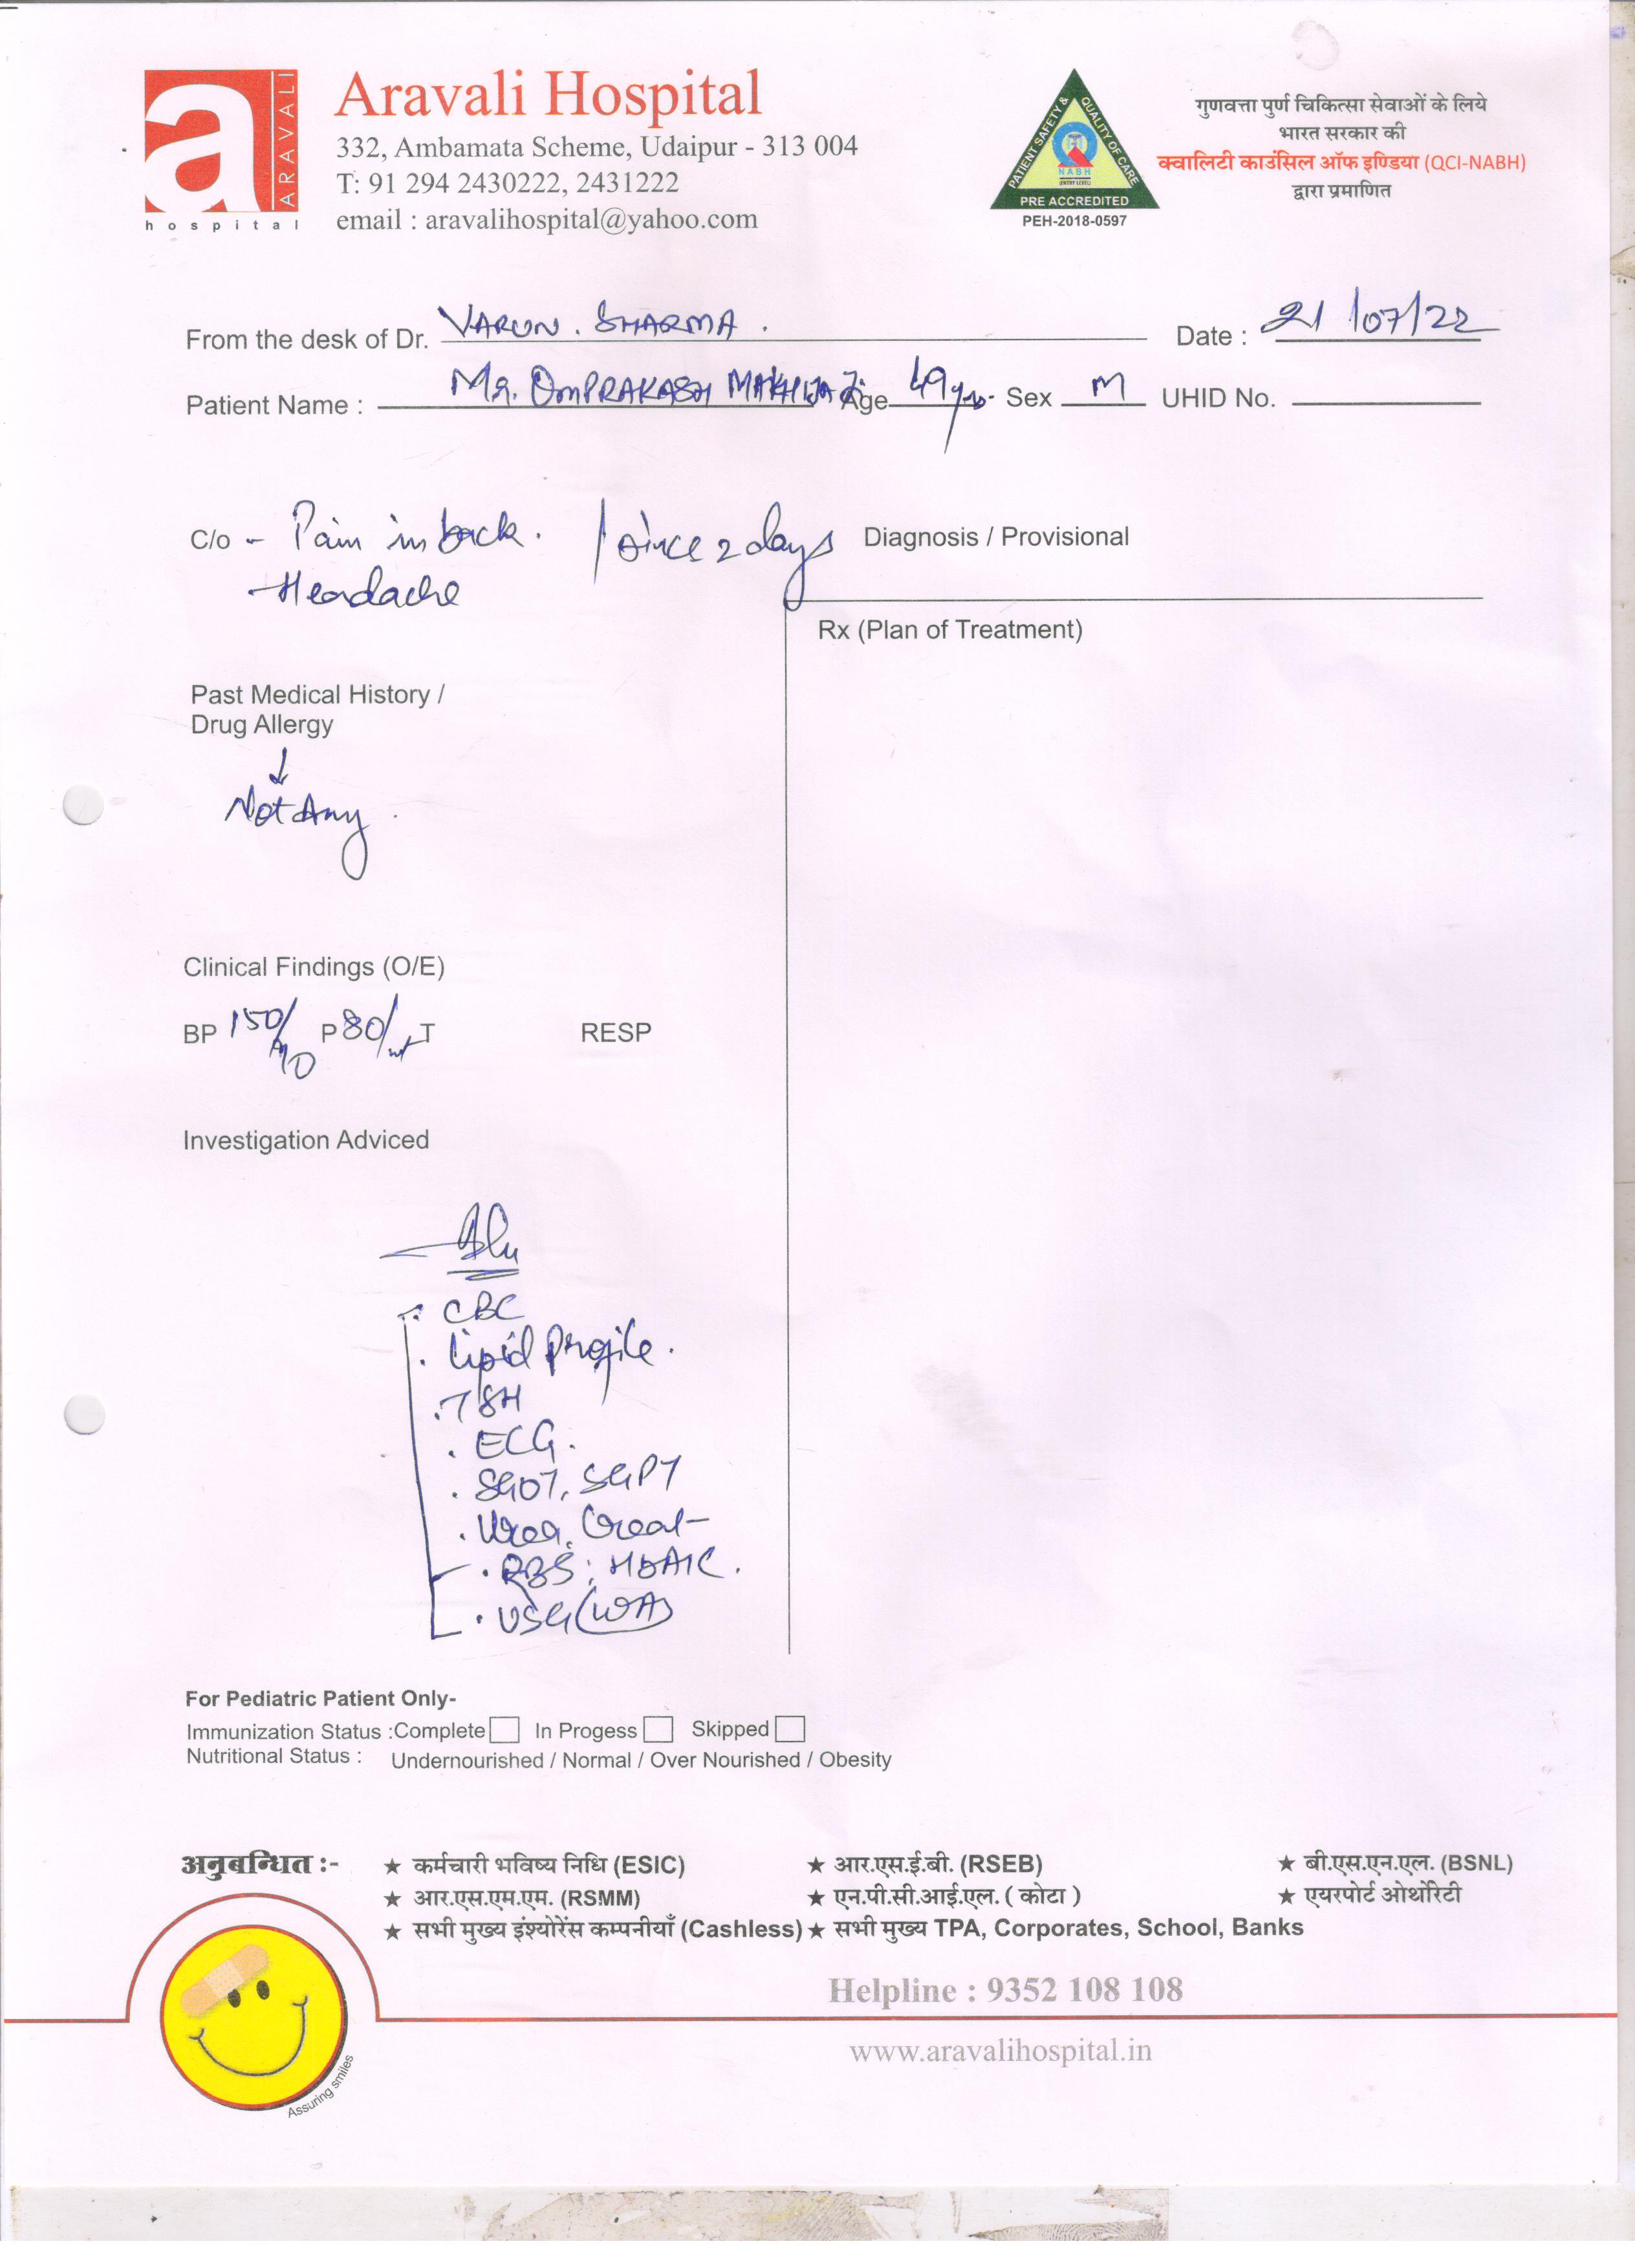 a ARAVALI
hospital
Aravali Hospital
332, Ambamata Scheme, Udaipur - 313 004
T: 91 294 2430222, 2431222
email : aravalihospital@yahoo.com
PATIENT SAFETY & QUALITY OF CARE
NABH
(ENTRY LEVEL)
PRE ACCREDITED
PEH-2018-0597
गुणवत्ता पुर्ण चिकित्सा सेवाओं के लिये
भारत सरकार की
क्वालिटी काउंसिल ऑफ इण्डिया (QCI-NABH)
द्वारा प्रमाणित
From the desk of Dr. VARUN. SHARMA. Date : 21/07/22
Patient Name : Mr. OMPRAKASH MAKHIJA Age 49 yrs. Sex M UHID No.
C/o - Pain in back. / since 2 days Diagnosis / Provisional
- Headache
Rx (Plan of Treatment)
Past Medical History /
Drug Allergy
↓
Not Any.
Clinical Findings (O/E)
BP 150/ P 80/ T RESP
Investigation Adviced
CBC
. Lipid Profile.
. TSH
. ECG.
. SGOT, SGPT
. Urea, Creat-
. RBS; HbA1C.
. USG (WA)
For Pediatric Patient Only-
Immunization Status :Complete In Progess Skipped
Nutritional Status : Undernourished / Normal / Over Nourished / Obesity
अनुबन्धित :- ★ कर्मचारी भविष्य निधि (ESIC) ★ आर.एस.ई.बी. (RSEB) ★ बी.एस.एन.एल. (BSNL)
★ आर.एस.एम.एम. (RSMM) ★ एन.पी.सी.आई.एल. ( कोटा ) ★ एयरपोर्ट ओथोंरिटी
★ सभी मुख्य इंश्योरेंस कम्पनीयाँ (Cashless) ★ सभी मुख्य TPA, Corporates, School, Banks
Helpline : 9352 108 108
www.aravalihospital.in
Assuring smiles